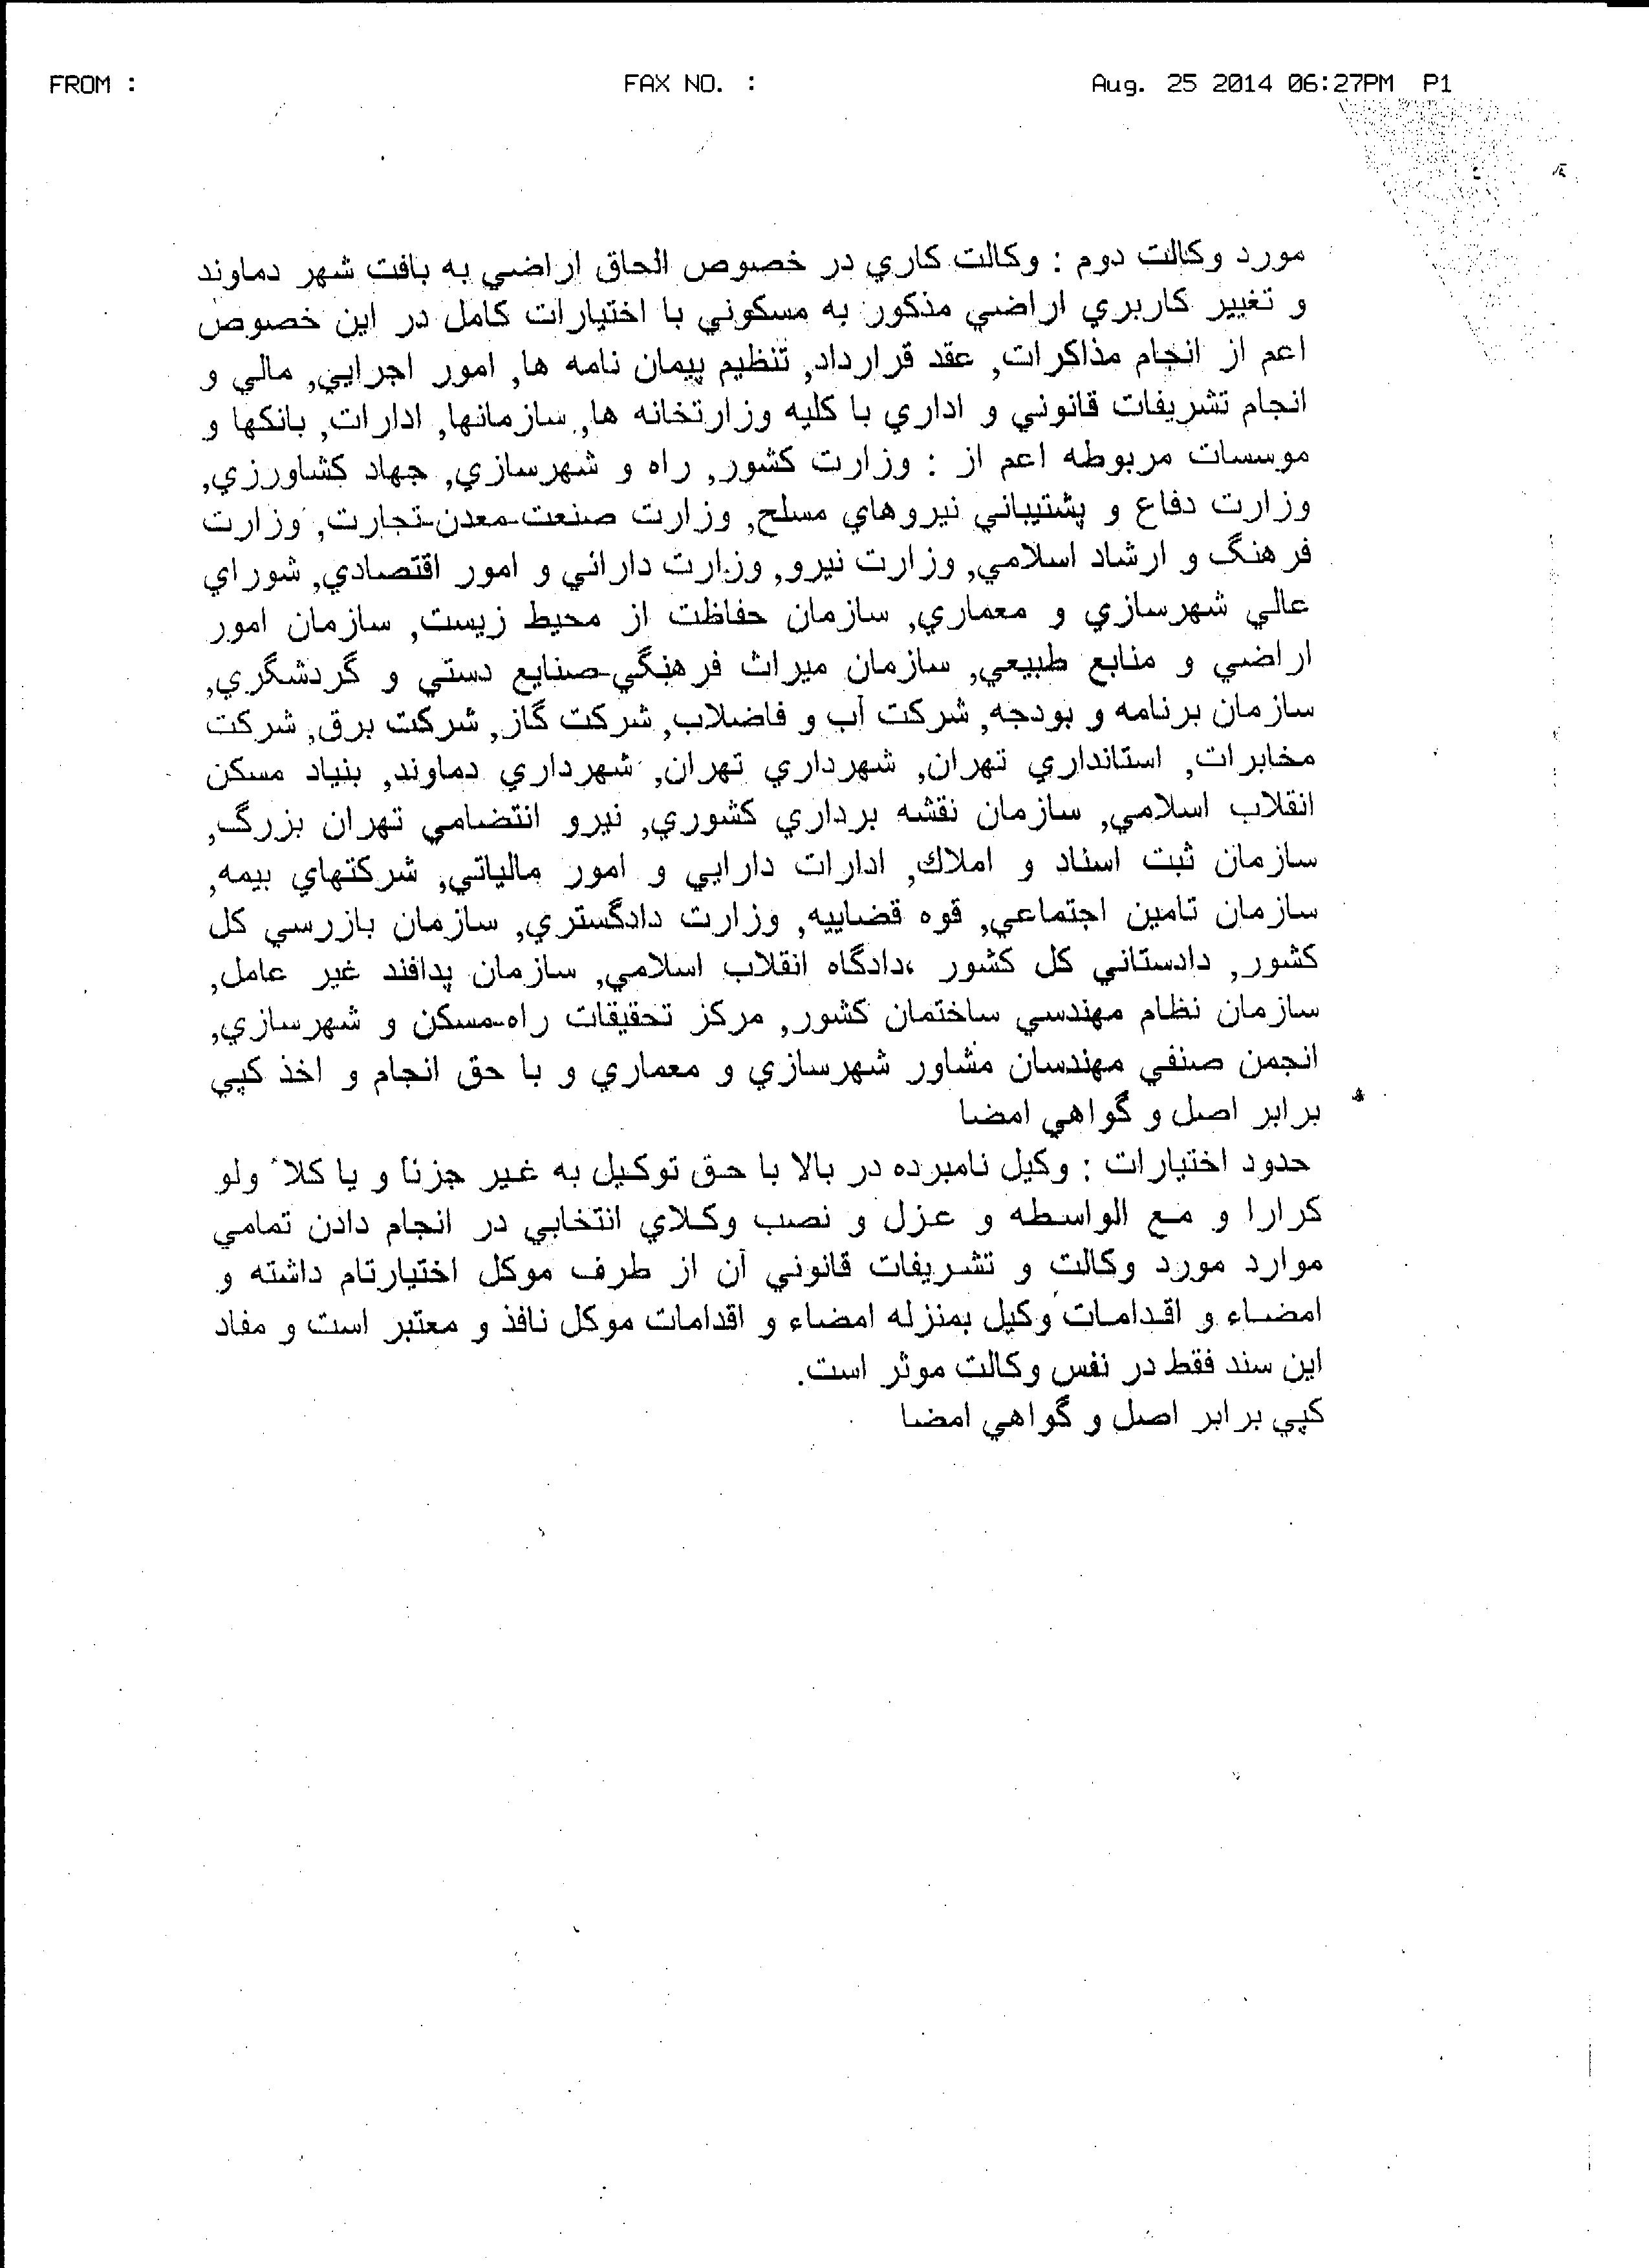 FROM : FAX NO. : Aug. 25 2014 06:27PM P1
مورد وكالت دوم : وكالت كاري در خصوص الحاق اراضي به بافت شهر دماوند
و تغيير كاربري اراضي مذكور به مسكوني با اختيارات كامل در اين خصوص
اعم از انجام مذاكرات, عقد قرارداد, تنظيم پيمان نامه ها, امور اجرايي, مالي و
انجام تشريفات قانوني و اداري با كليه وزارتخانه ها, سازمانها, ادارات, بانكها و
موسسات مربوطه اعم از : وزارت كشور, راه و شهرسازي, جهاد كشاورزي,
وزارت دفاع و پشتيباني نيروهاي مسلح, وزارت صنعت-معدن-تجارت, وزارت
فرهنگ و ارشاد اسلامي, وزارت نيرو, وزارت دارائي و امور اقتصادي, شوراي
عالي شهرسازي و معماري, سازمان حفاظت از محيط زيست, سازمان امور
اراضي و منابع طبيعي, سازمان ميراث فرهنگي-صنايع دستي و گردشگري,
سازمان برنامه و بودجه, شركت آب و فاضلاب, شركت گاز, شركت برق, شركت
مخابرات, استانداري تهران, شهرداري تهران, شهرداري دماوند, بنياد مسكن
انقلاب اسلامي, سازمان نقشه برداري كشوري, نيرو انتضامي تهران بزرگ,
سازمان ثبت اسناد و املاك, ادارات دارايي و امور مالياتي, شركتهاي بيمه,
سازمان تامين اجتماعي, قوه قضاييه, وزارت دادگستري, سازمان بازرسي كل
كشور, دادستاني كل كشور ،دادگاه انقلاب اسلامي, سازمان پدافند غير عامل,
سازمان نظام مهندسي ساختمان كشور, مركز تحقيقات راه-مسكن و شهرسازي,
انجمن صنفي مهندسان مشاور شهرسازي و معماري و با حق انجام و اخذ كپي
برابر اصل و گواهي امضا
حدود اختيارات : وكيل نامبرده در بالا با حق توكيل به غير جزئاً و يا كلاً ولو
كرارا و مع الواسطه و عزل و نصب وكلاي انتخابي در انجام دادن تمامي
موارد مورد وكالت و تشريفات قانوني آن از طرف موكل اختيارتام داشته و
امضاء و اقدامات وكيل بمنزله امضاء و اقدامات موكل نافذ و معتبر است و مفاد
اين سند فقط در نفس وكالت موثر است.
كپي برابر اصل و گواهي امضا